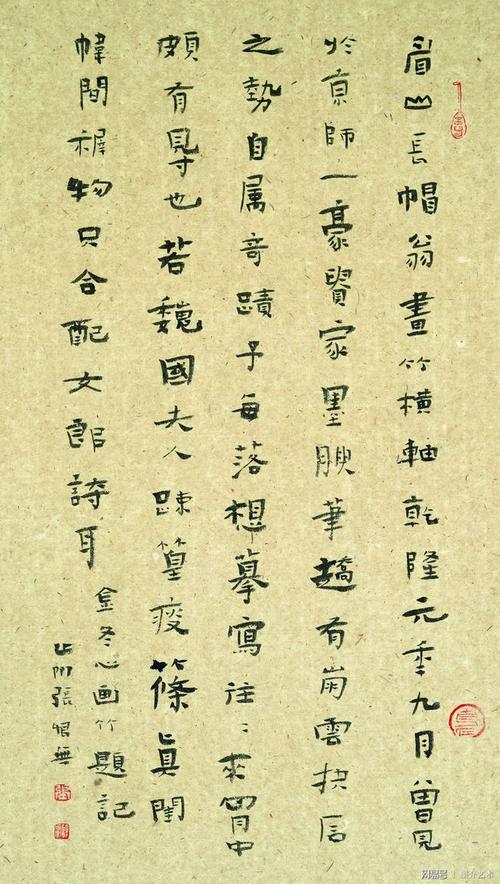 眉山長帽翁畫竹橫軸乾隆元季九月曾見
於京師一豪貴家墨腴筆趫有崩雲抉石
之勢自属奇蹟予每落想摹寫往〻來胸中
頗有得也若魏國夫人疎篁瘦篠真閨
幃間褻物只合配女郎詩耳
金冬心画竹題記
張
网易号